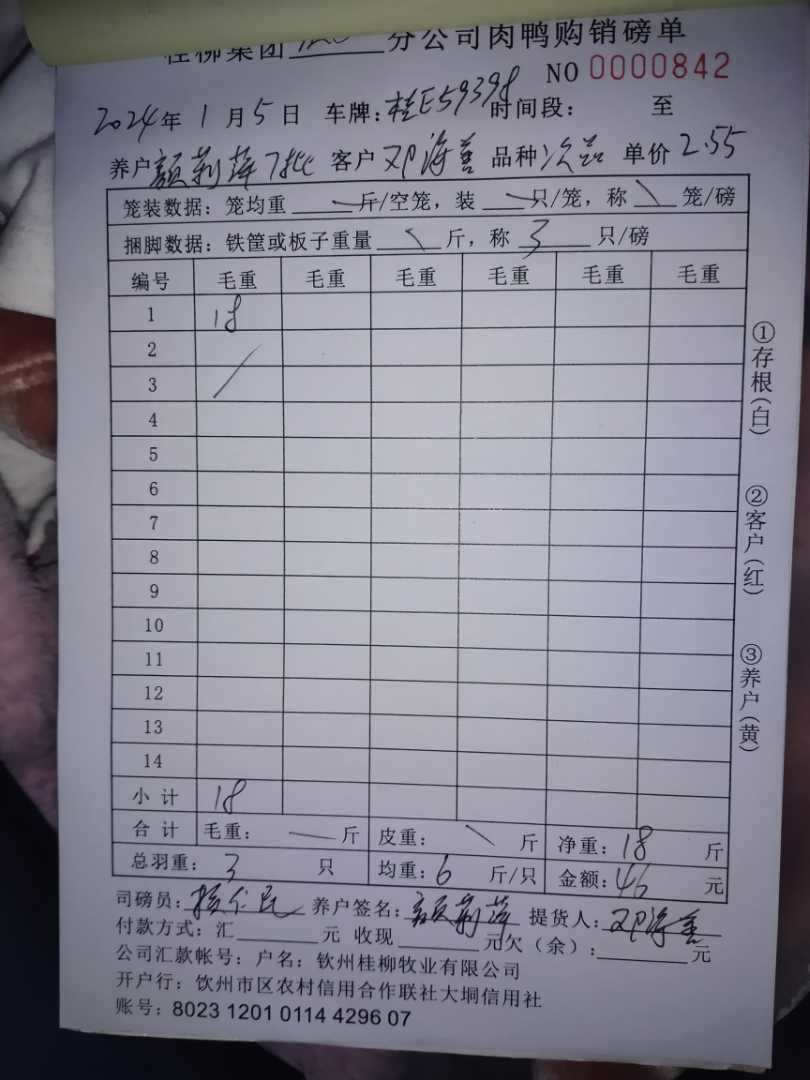 桂柳集团 分公司肉鸭购销磅单
NO 0000842
2024年1月5日 车牌：桂E59398 时间段： 至
养户 颜莉萍7批 客户 邓海善 品种 次品 单价 2.55
笼装数据：笼均重 斤/空笼，装 只/笼，称 笼/磅
捆脚数据：铁筐或板子重量 斤，称 3 只/磅
编号 毛重 毛重 毛重 毛重 毛重 毛重
1 18
2
3
4
5
6
7
8
9
10
11
12
13
14
小计 18
合计 毛重： 斤 皮重： 斤 净重：18 斤
总羽重：3 只 均重：6 斤/只 金额：46 元
司磅员： 养户签名：颜莉萍 提货人：邓海善
付款方式：汇 元 收现 元欠（余）： 元
公司汇款帐号：户名：钦州桂柳牧业有限公司
开户行：钦州市区农村信用合作联社大垌信用社
账号：8023 1201 0114 4296 07
①存根（白）
②客户（红）
③养户（黄）